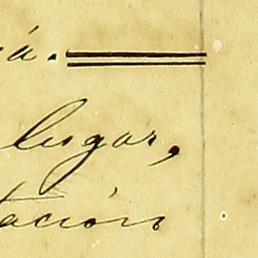 iá.
lugar,
tación